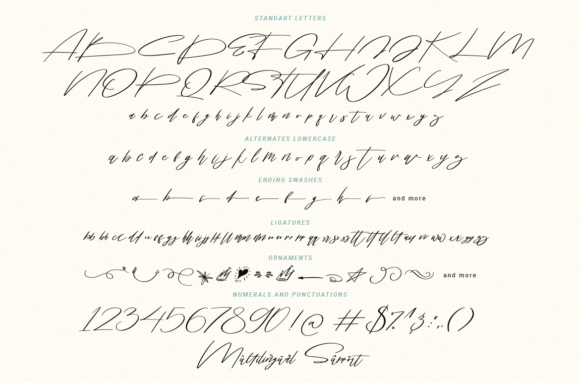 STANDART LETTERS
A B C D E F G H I J K L M
N O P Q R S T U V W X Y Z
a b c d e f g h i j k l m n o p q r s t u v w x y z
ALTERNATES LOWERCASE
a b c d e f g h i j k l m n o p q r s t u v w x y z
ENDING SWASHES
a b c d e f g h i and more
LIGATURES
ORNAMENTS
and more
NUMERALS AND PUNCTUATIONS
1234567890!@#$%^&:;,()
Multilingual Support